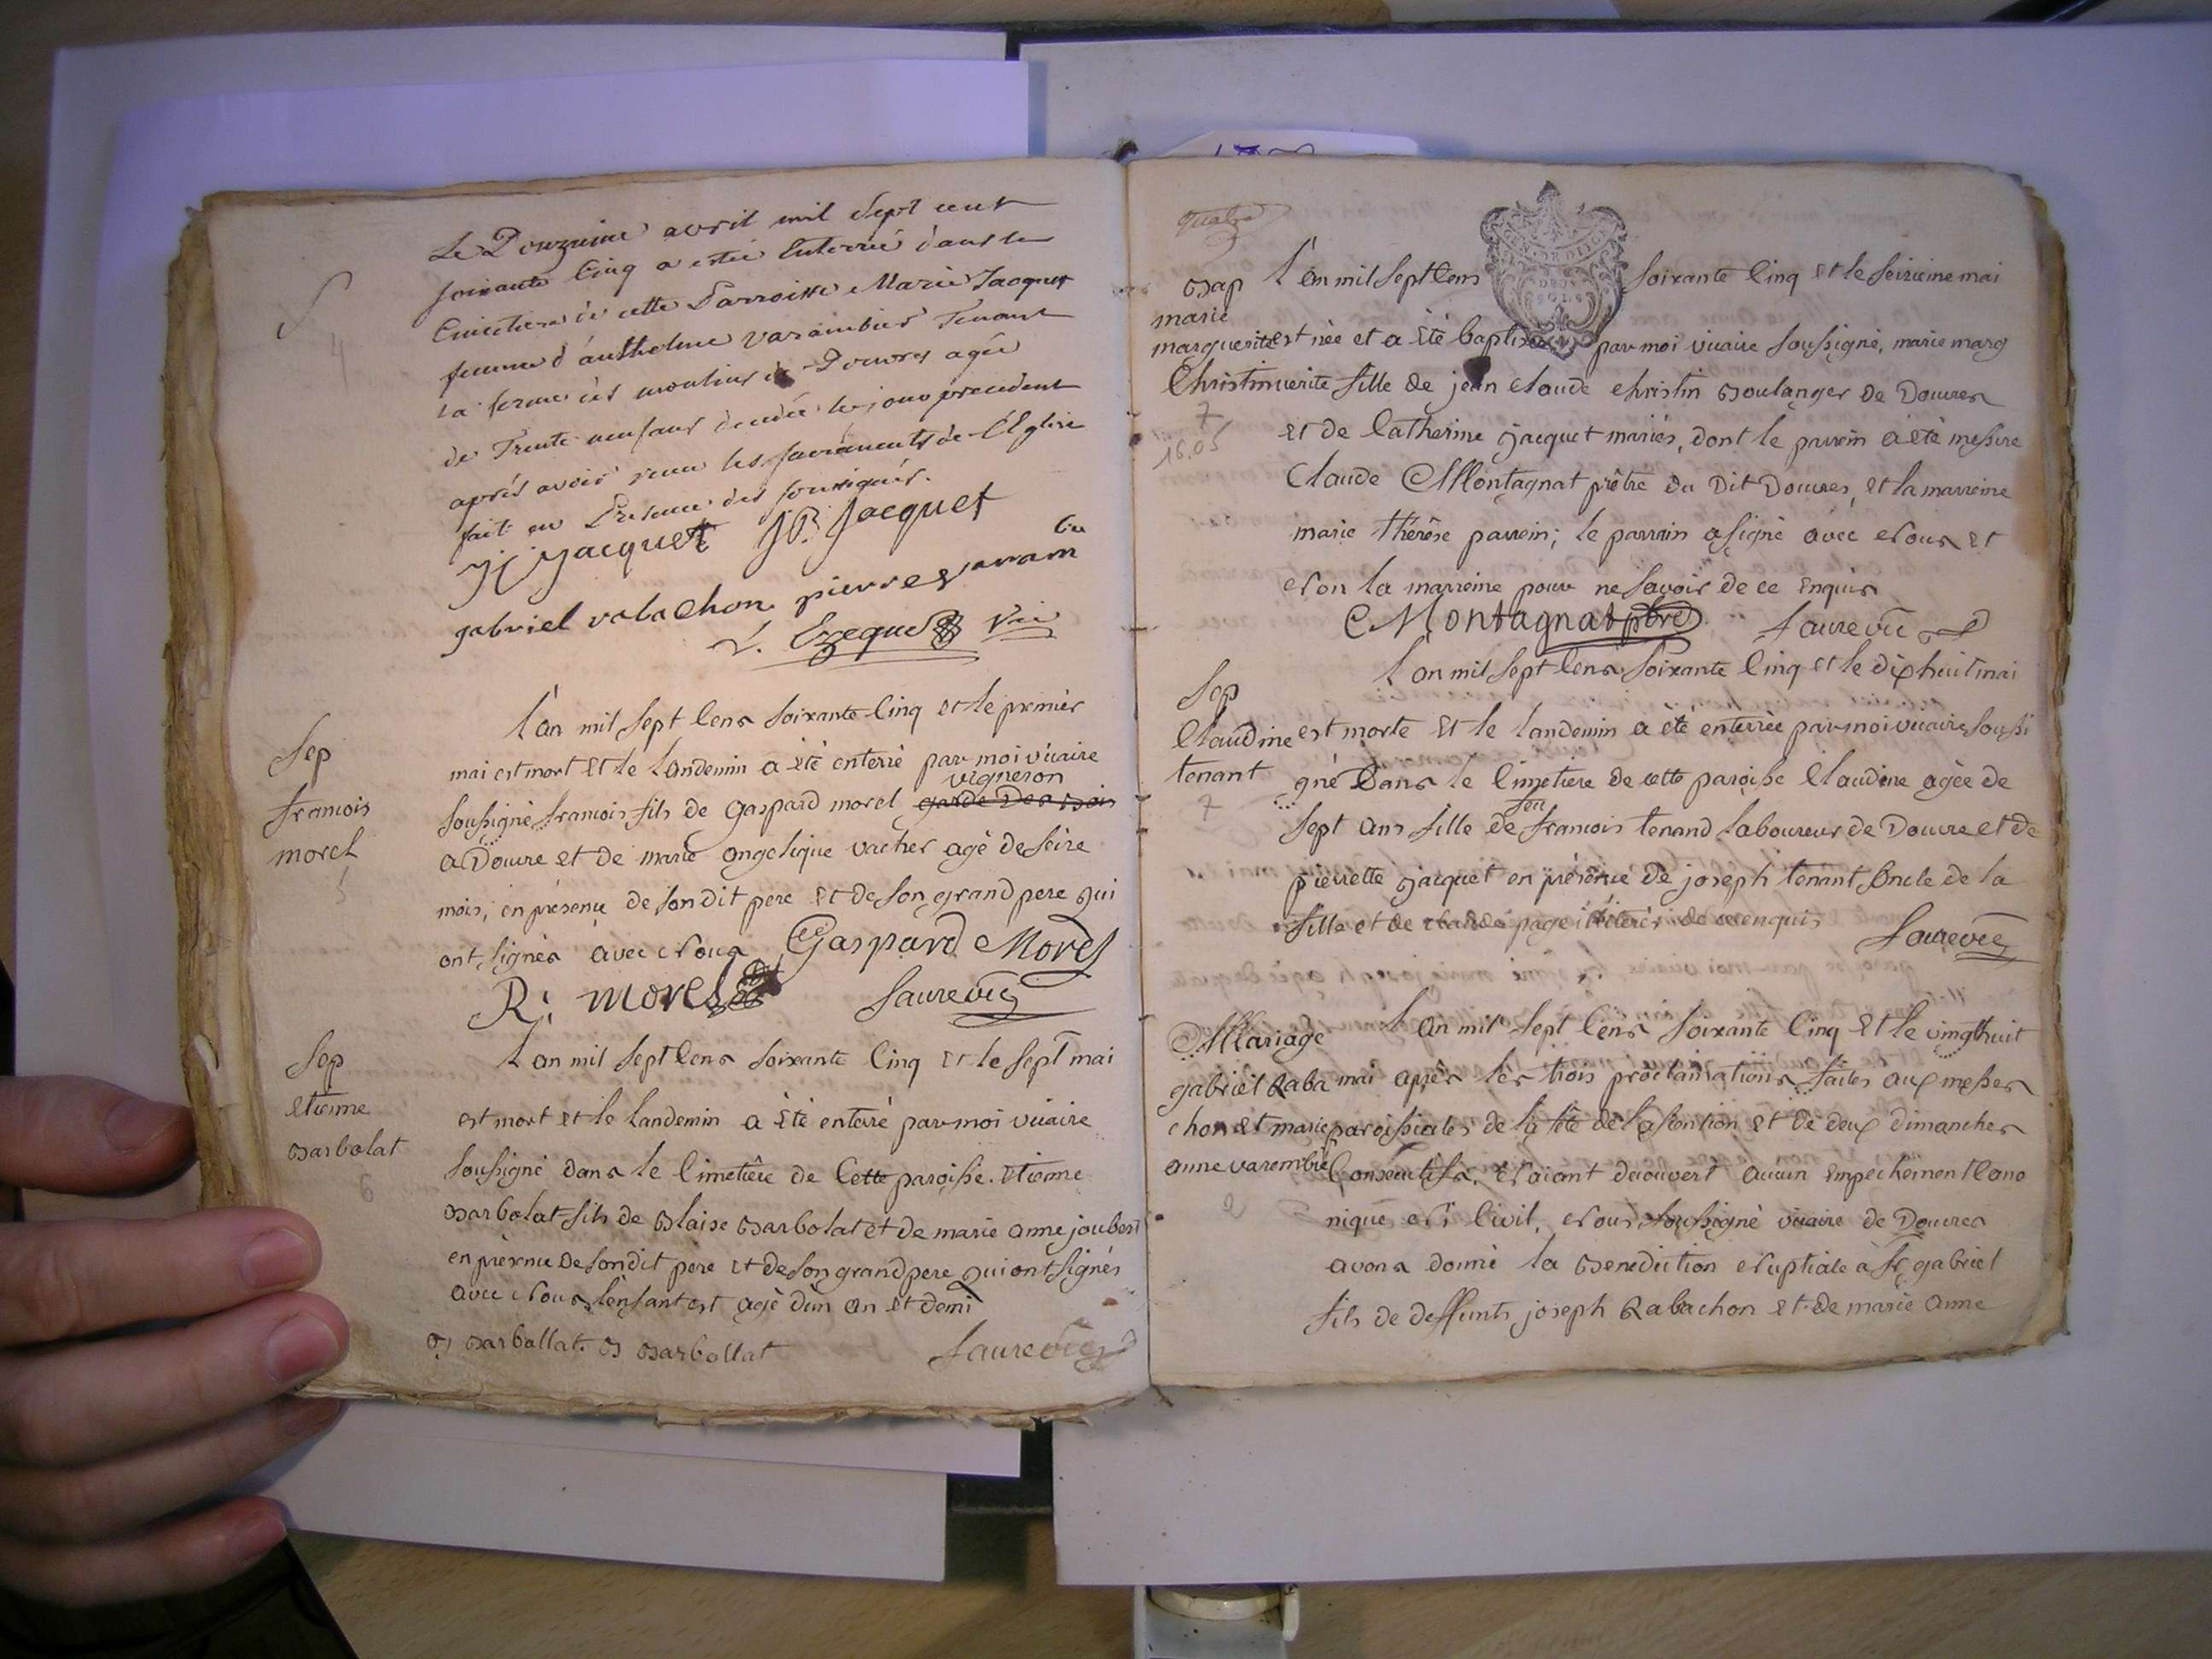 S
4
Le Douzieme avril mil Sept cent
soixante Cinq a estée Enterrée dans le
Cimetiere de cette Parroisse Marie Jacquet
femme d'anthelme varambier Tenant
la ferme des moulins de Douvres agée
de Trente neuf ans decedée le jour precedent
aprés avoir reçu les sacrements de L'Eglise
fait en Presence des soussignés.
JJ Jacquet JB. Jacquet
gabriel rabachon pierre varam
bie
Vic
Sep
francois
morel
5
L'an mil Sept Cens Soixante Cinq et le premier
mai est mort Et le Landemin a été enterré par moi vicaire
vigneron
Soussigné francois fils de Gaspard morel garde des bois
a Douvre et de marie angelique vacher agé de seize
mois, en présence de sondit pere et de son grand pere qui
ont signés avec Nous Gaspard Morel
R. morel Faure vic
Sep
etienne
Barbolat
6
L'an mil Sept Cens Soixante Cinq et le Sept mai
est mort et le Landemin a été enterré par moi vicaire
Soussigné dans le Cimetiére de Cette paroisse. etienne
Barbolat fils de Blaise Barbolat et de marie anne joubert
en présence de sondit pére Et de son grand pere qui ont signés
avec Nous, l'enfant est agé d'un an et demi
B Barballat. B Barbollat Faure vic
quatre
GEN. DE DIJON
DEUX SOLS
Bap
marie
marguerite
Christin
7
16.05
L'an mil Sept Cens Soixante Cinq et le seizieme mai
est née et a été baptisée par moi vicaire Soussigné, marie marg
uerite fille de jean claude christin Boulanger de Douvres
et de Catherine jacquet mariés, dont le parrein a été messire
Claude Montagnat prêtre du Dit Douvres, et la marreine
marie thérése parrein; le parrein a signé avec Nous et
Non la marreine pour ne Savoir de ce Enquis
C Montagnat ptre Faure vic
Sep
Claudine
tenant
7
L'an mil Sept Cens Soixante Cinq et le dix huit mai
est morte Et le Landemin a été enterrée par moi vicaire Soussi
gné Dans le Cimetiere de cette paroisse Claudine agée de
feu
Sept ans fille de francois tenand Laboureur de Douvre et de
pierrette jacquet en présence de joseph tenant Oncle de la
fille et de claude page illiterés de ce enquis
Faure vic
Mariage
gabriel Raba
chon et marie
anne varembie
2
L'an mil Sept Cens Soixante Cinq Et le vingt huit
mai aprés les trois proclamations faites aux messes
paroissiales de la fête de l'ascention et de deux dimanches
Consecutifs, N'aiant decouvert aucun Empechement Cano
nique Ni Civil, Nous Soussigné vicaire de Douvres
avons donné la Benediction Nuptiale à Sr. gabriel
fils de deffunts joseph Rabachon et de marie anne